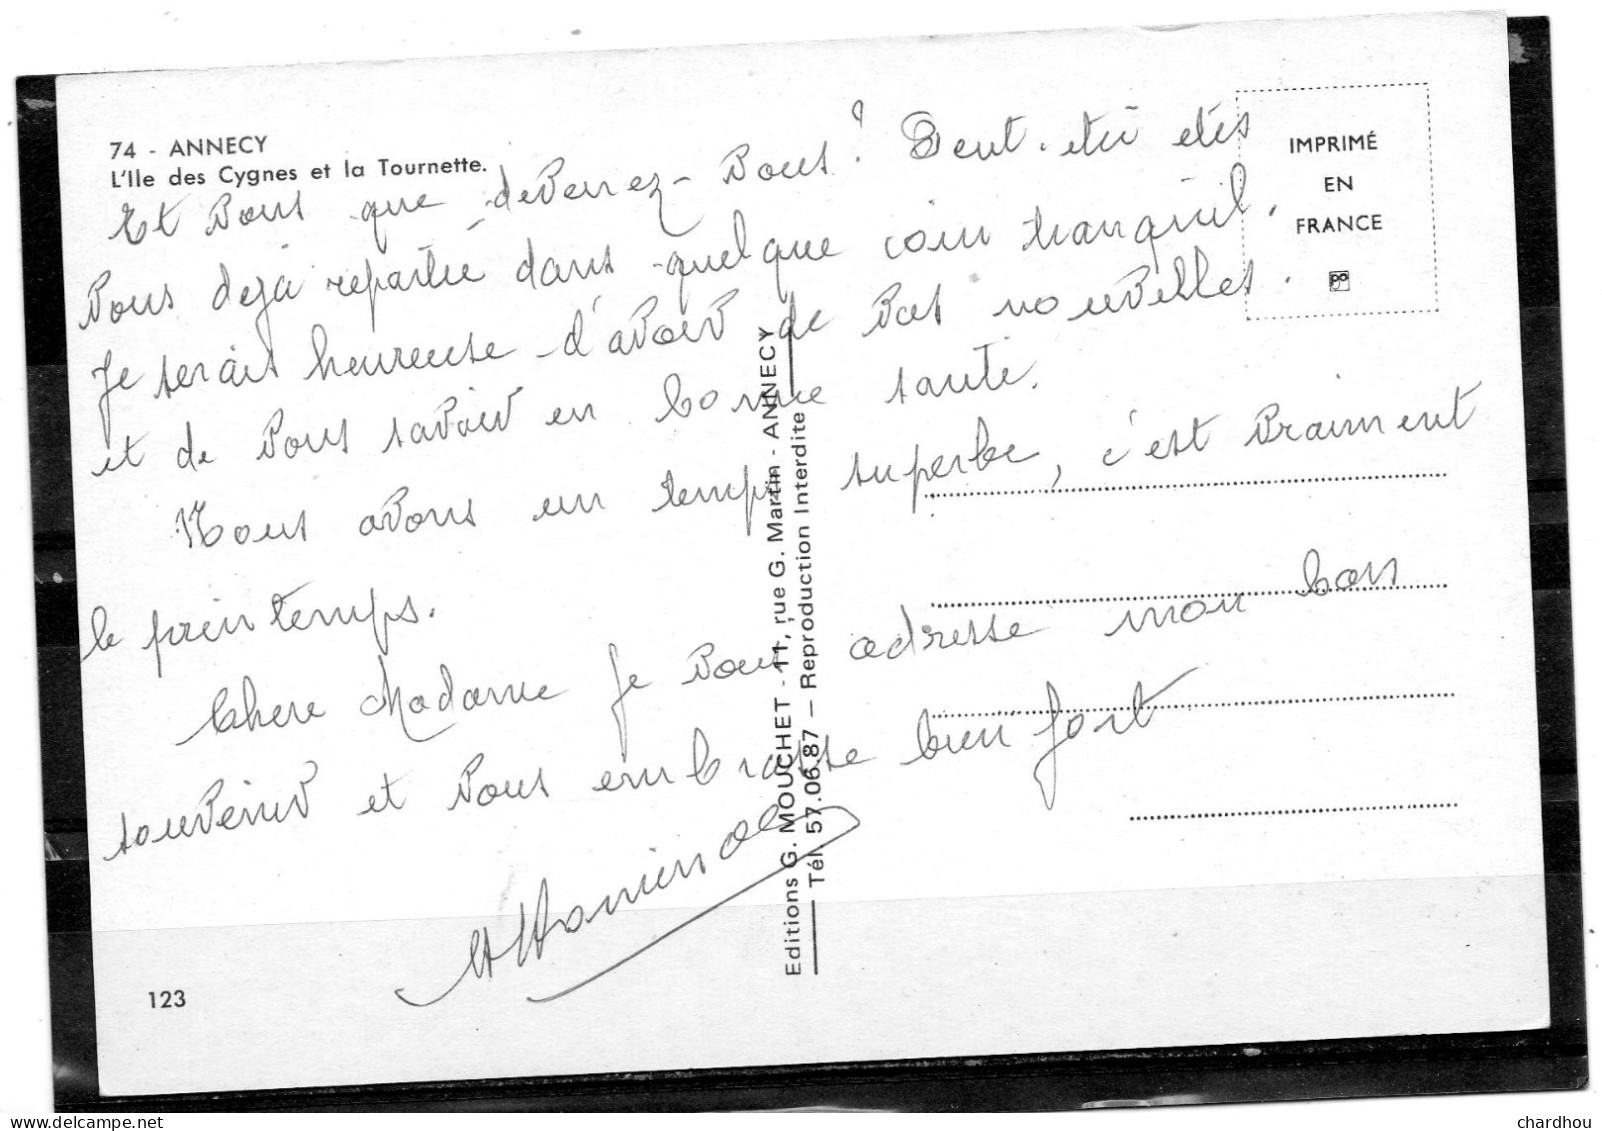 74 - ANNECY
L'Ile des Cygnes et la Tournette.
Et vous que devenez-vous ? Peut-être etes
vous dejà repartie dans quelque coin tranquil.
Je serais heureuse d'avoir de vos nouvelles.
et de vous savoir en bonne santé.
Nous avons un temps superbe, c'est vraiment
le printemps.
Chere Madame je vous adresse mon bon
souvenir et vous embrasse bien fort
123
Editions G. MOUCHET - 11, rue G. Martin - ANNECY
Tél. 57.06.87 — Reproduction Interdite
IMPRIMÉ
EN
FRANCE
chardhou